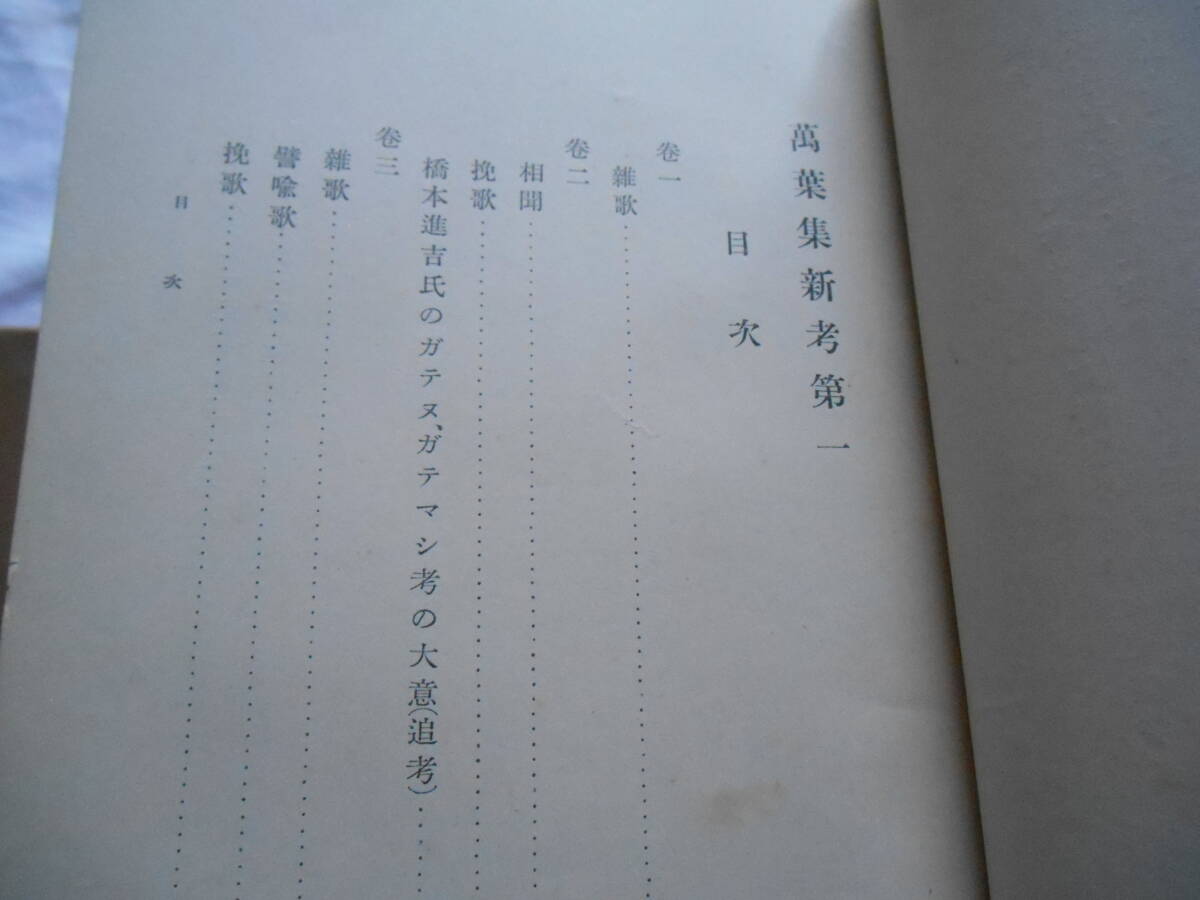 萬葉集新考第一
目次
卷一
雜歌
卷二
相聞
挽歌
橋本進吉氏のガテヌ、ガテマシ考の大意(追考)
卷三
雜歌
譬喩歌
挽歌
目次